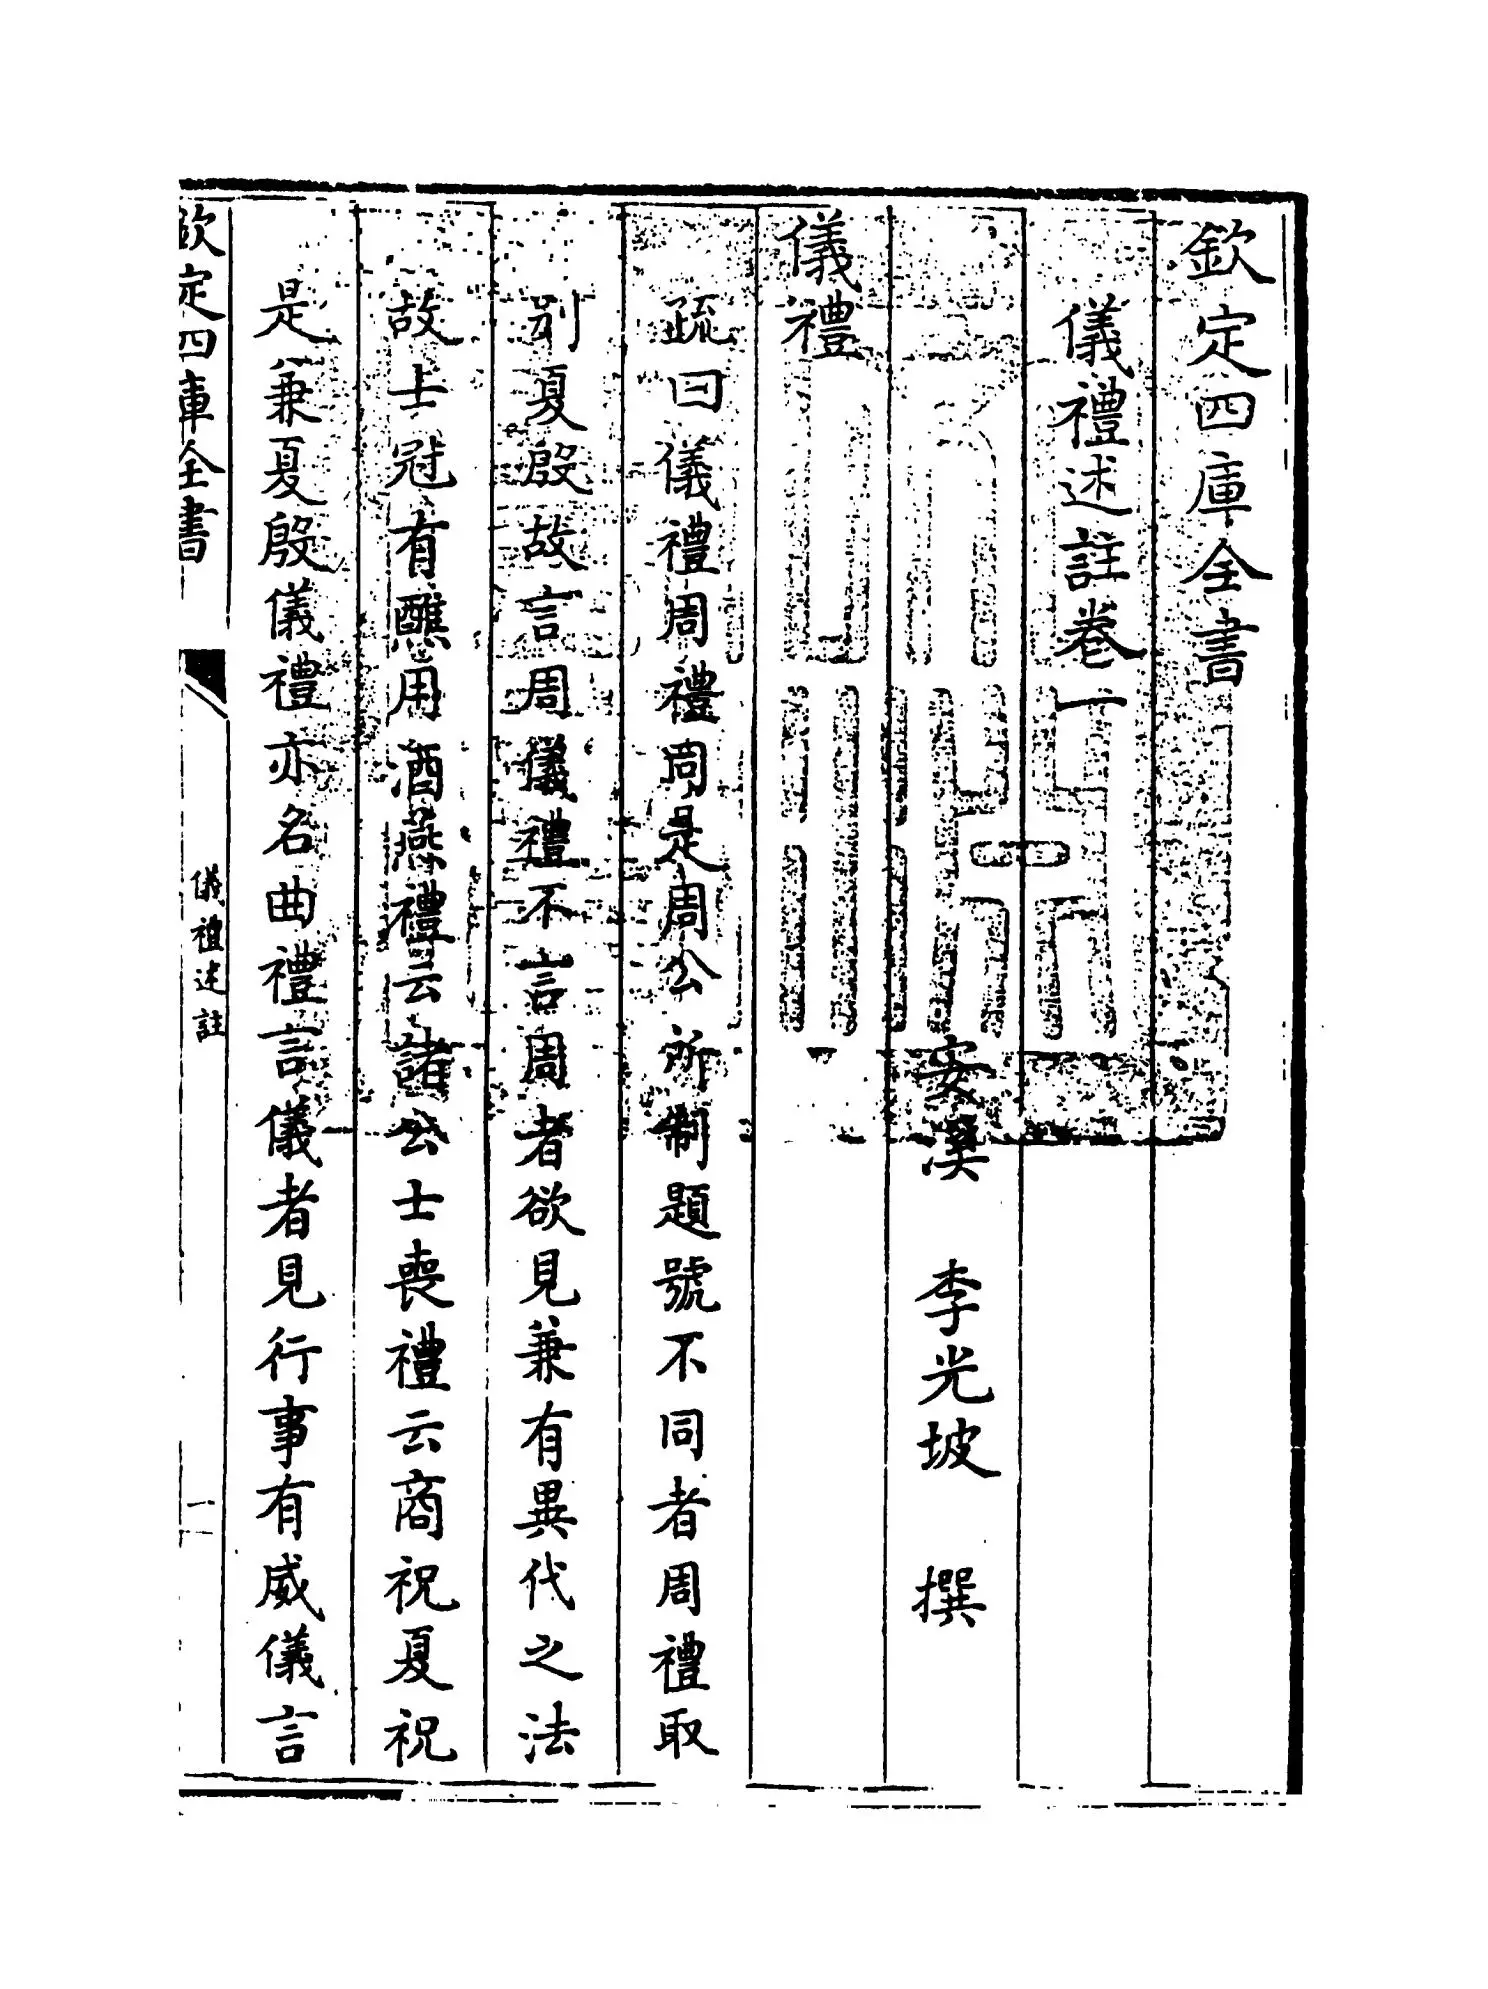 欽定四庫全書
儀禮述註卷一
安溪 李光坡 撰
儀禮
疏曰儀禮周禮同是周公所制題號不同者周禮取
別夏殷故言周儀禮不言周者欲見兼有異代之法
故士冠有醮用酒燕禮云諸公士喪禮云商祝夏祝
是兼夏殷儀禮亦名曲禮言儀者見行事有威儀言
欽定四庫全書
儀禮述註
一